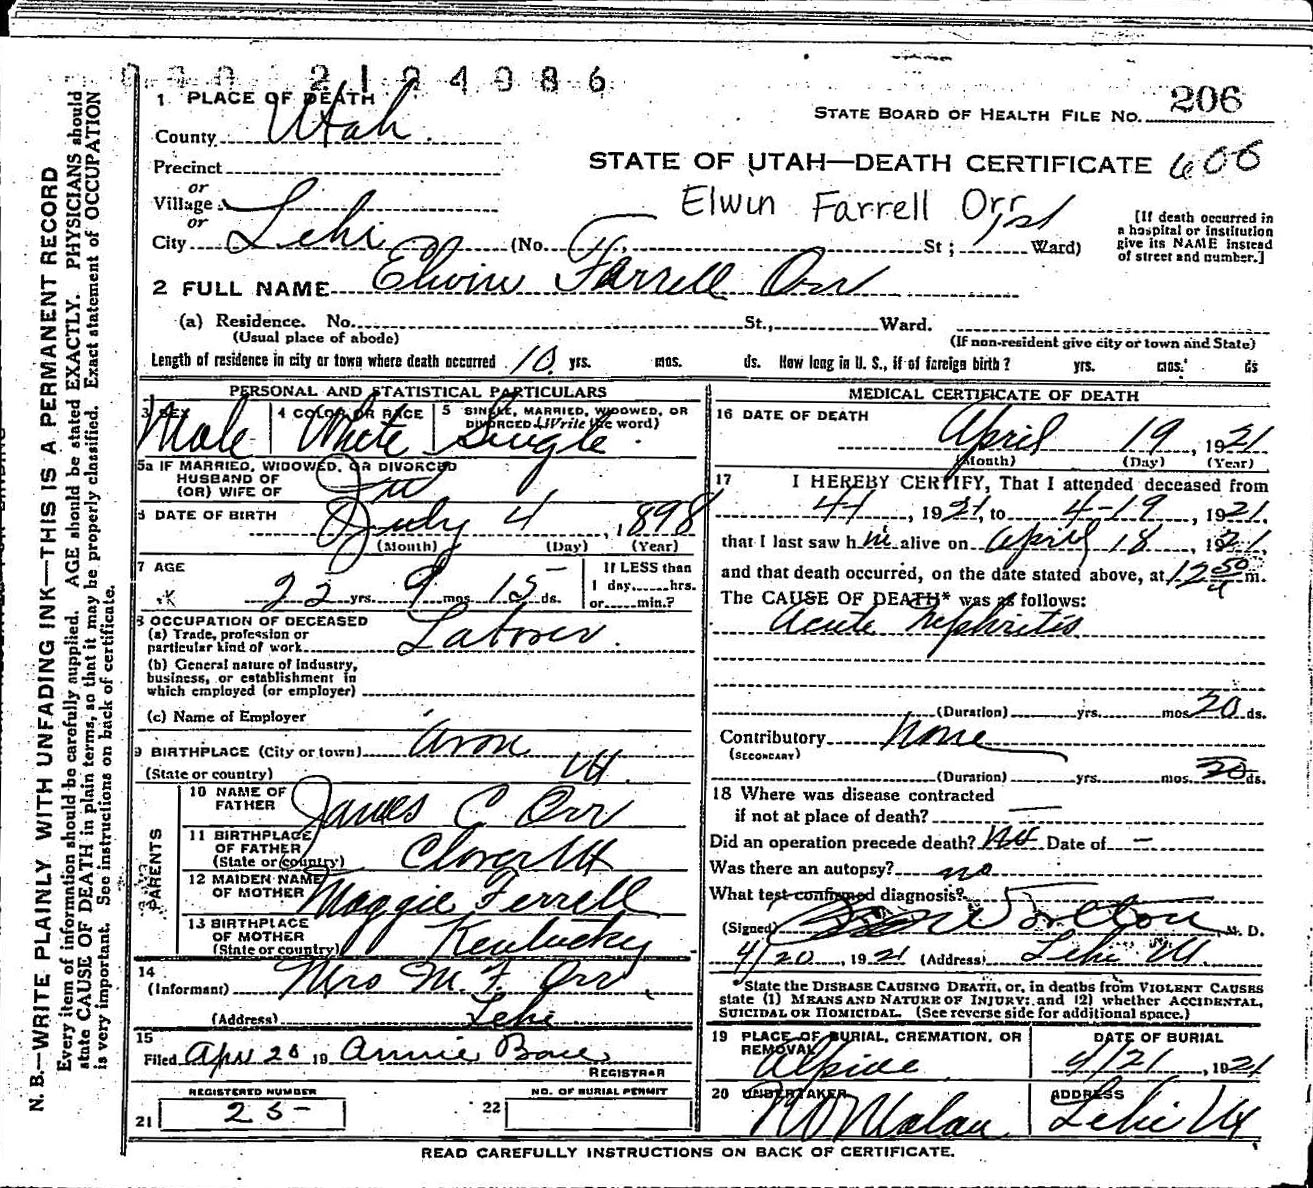 000 2194086
1 PLACE OF DEATH
STATE BOARD OF HEALTH FILE No. 206
County Utah.
Precinct
STATE OF UTAH—DEATH CERTIFICATE 606
or
Village
Elwin Farrell Orr
or
City Lehi (No. St; 1st Ward)
[If death occurred in
a hospital or institution
give its NAME instead
of street and number.]
2 FULL NAME Elwin Farrell Orr
(a) Residence. No. St., Ward.
(Usual place of abode) (If non-resident give city or town and State)
Length of residence in city or town where death occurred 10 yrs. mos. ds. How long in U. S., if of foreign birth? yrs. mos. ds
PERSONAL AND STATISTICAL PARTICULARS
3 SEX 4 COLOR OR RACE 5 SINGLE, MARRIED, WIDOWED, OR
DIVORCED (Write the word)
Male White Single.
5a IF MARRIED, WIDOWED, OR DIVORCED
HUSBAND OF
(OR) WIFE OF
6 DATE OF BIRTH July 4, 1898
(Month) (Day) (Year)
7 AGE If LESS than
22 yrs. 9 mos 15 ds. 1 day,......hrs.
or......min.?
8 OCCUPATION OF DECEASED
(a) Trade, profession or
particular kind of work Laborer.
(b) General nature of industry,
business, or establishment in
which employed (or employer)
(c) Name of Employer
9 BIRTHPLACE (City or town)
(State or country) Ut.
PARENTS
10 NAME OF
FATHER James C Orr
11 BIRTHPLACE
OF FATHER
(State or country) Clover Ut
12 MAIDEN NAME
OF MOTHER Maggie Ferrell
13 BIRTHPLACE
OF MOTHER
(State or country) Kentucky
14
(Informant) Mrs M. F. Orr,
(Address) Lehi
15
Filed Apr 20 19 Annie
REGISTRAR
REGISTERED NUMBER NO. OF BURIAL PERMIT
21 25- 22
MEDICAL CERTIFICATE OF DEATH
16 DATE OF DEATH
April 19, 1921
(Month) (Day) (Year)
17 I HEREBY CERTIFY, That I attended deceased from
4-1, 1921, to 4-19, 1921,
that I last saw him alive on April 18, 1921,
and that death occurred, on the date stated above, at 12 50 m.
The CAUSE OF DEATH* was as follows:
Acute Nephritis
(Duration) yrs. mos 20 ds.
Contributory None
(SECONDARY)
(Duration) yrs. mos. 20 ds.
18 Where was disease contracted
if not at place of death? —
Did an operation precede death? No Date of —
Was there an autopsy? no
What test confirmed diagnosis?
(Signed) M. D.
4/20, 1921 (Address) Lehi Ut.
*State the DISEASE CAUSING DEATH, or, in deaths from VIOLENT CAUSES
state (1) MEANS AND NATURE OF INJURY; and (2) whether ACCIDENTAL,
SUICIDAL OR HOMICIDAL. (See reverse side for additional space.)
19 PLACE OF BURIAL, CREMATION, OR DATE OF BURIAL
REMOVAL
Alpine 4/21, 1921
20 UNDERTAKER ADDRESS
Malan Lehi Ut
READ CAREFULLY INSTRUCTIONS ON BACK OF CERTIFICATE.
N. B.—WRITE PLAINLY WITH UNFADING INK—THIS IS A PERMANENT RECORD
Every item of information should be carefully supplied. AGE should be stated EXACTLY. PHYSICIANS should
state CAUSE OF DEATH in plain terms, so that it may be properly classified. Exact statement of OCCUPATION
is very important. See instructions on back of certificate.